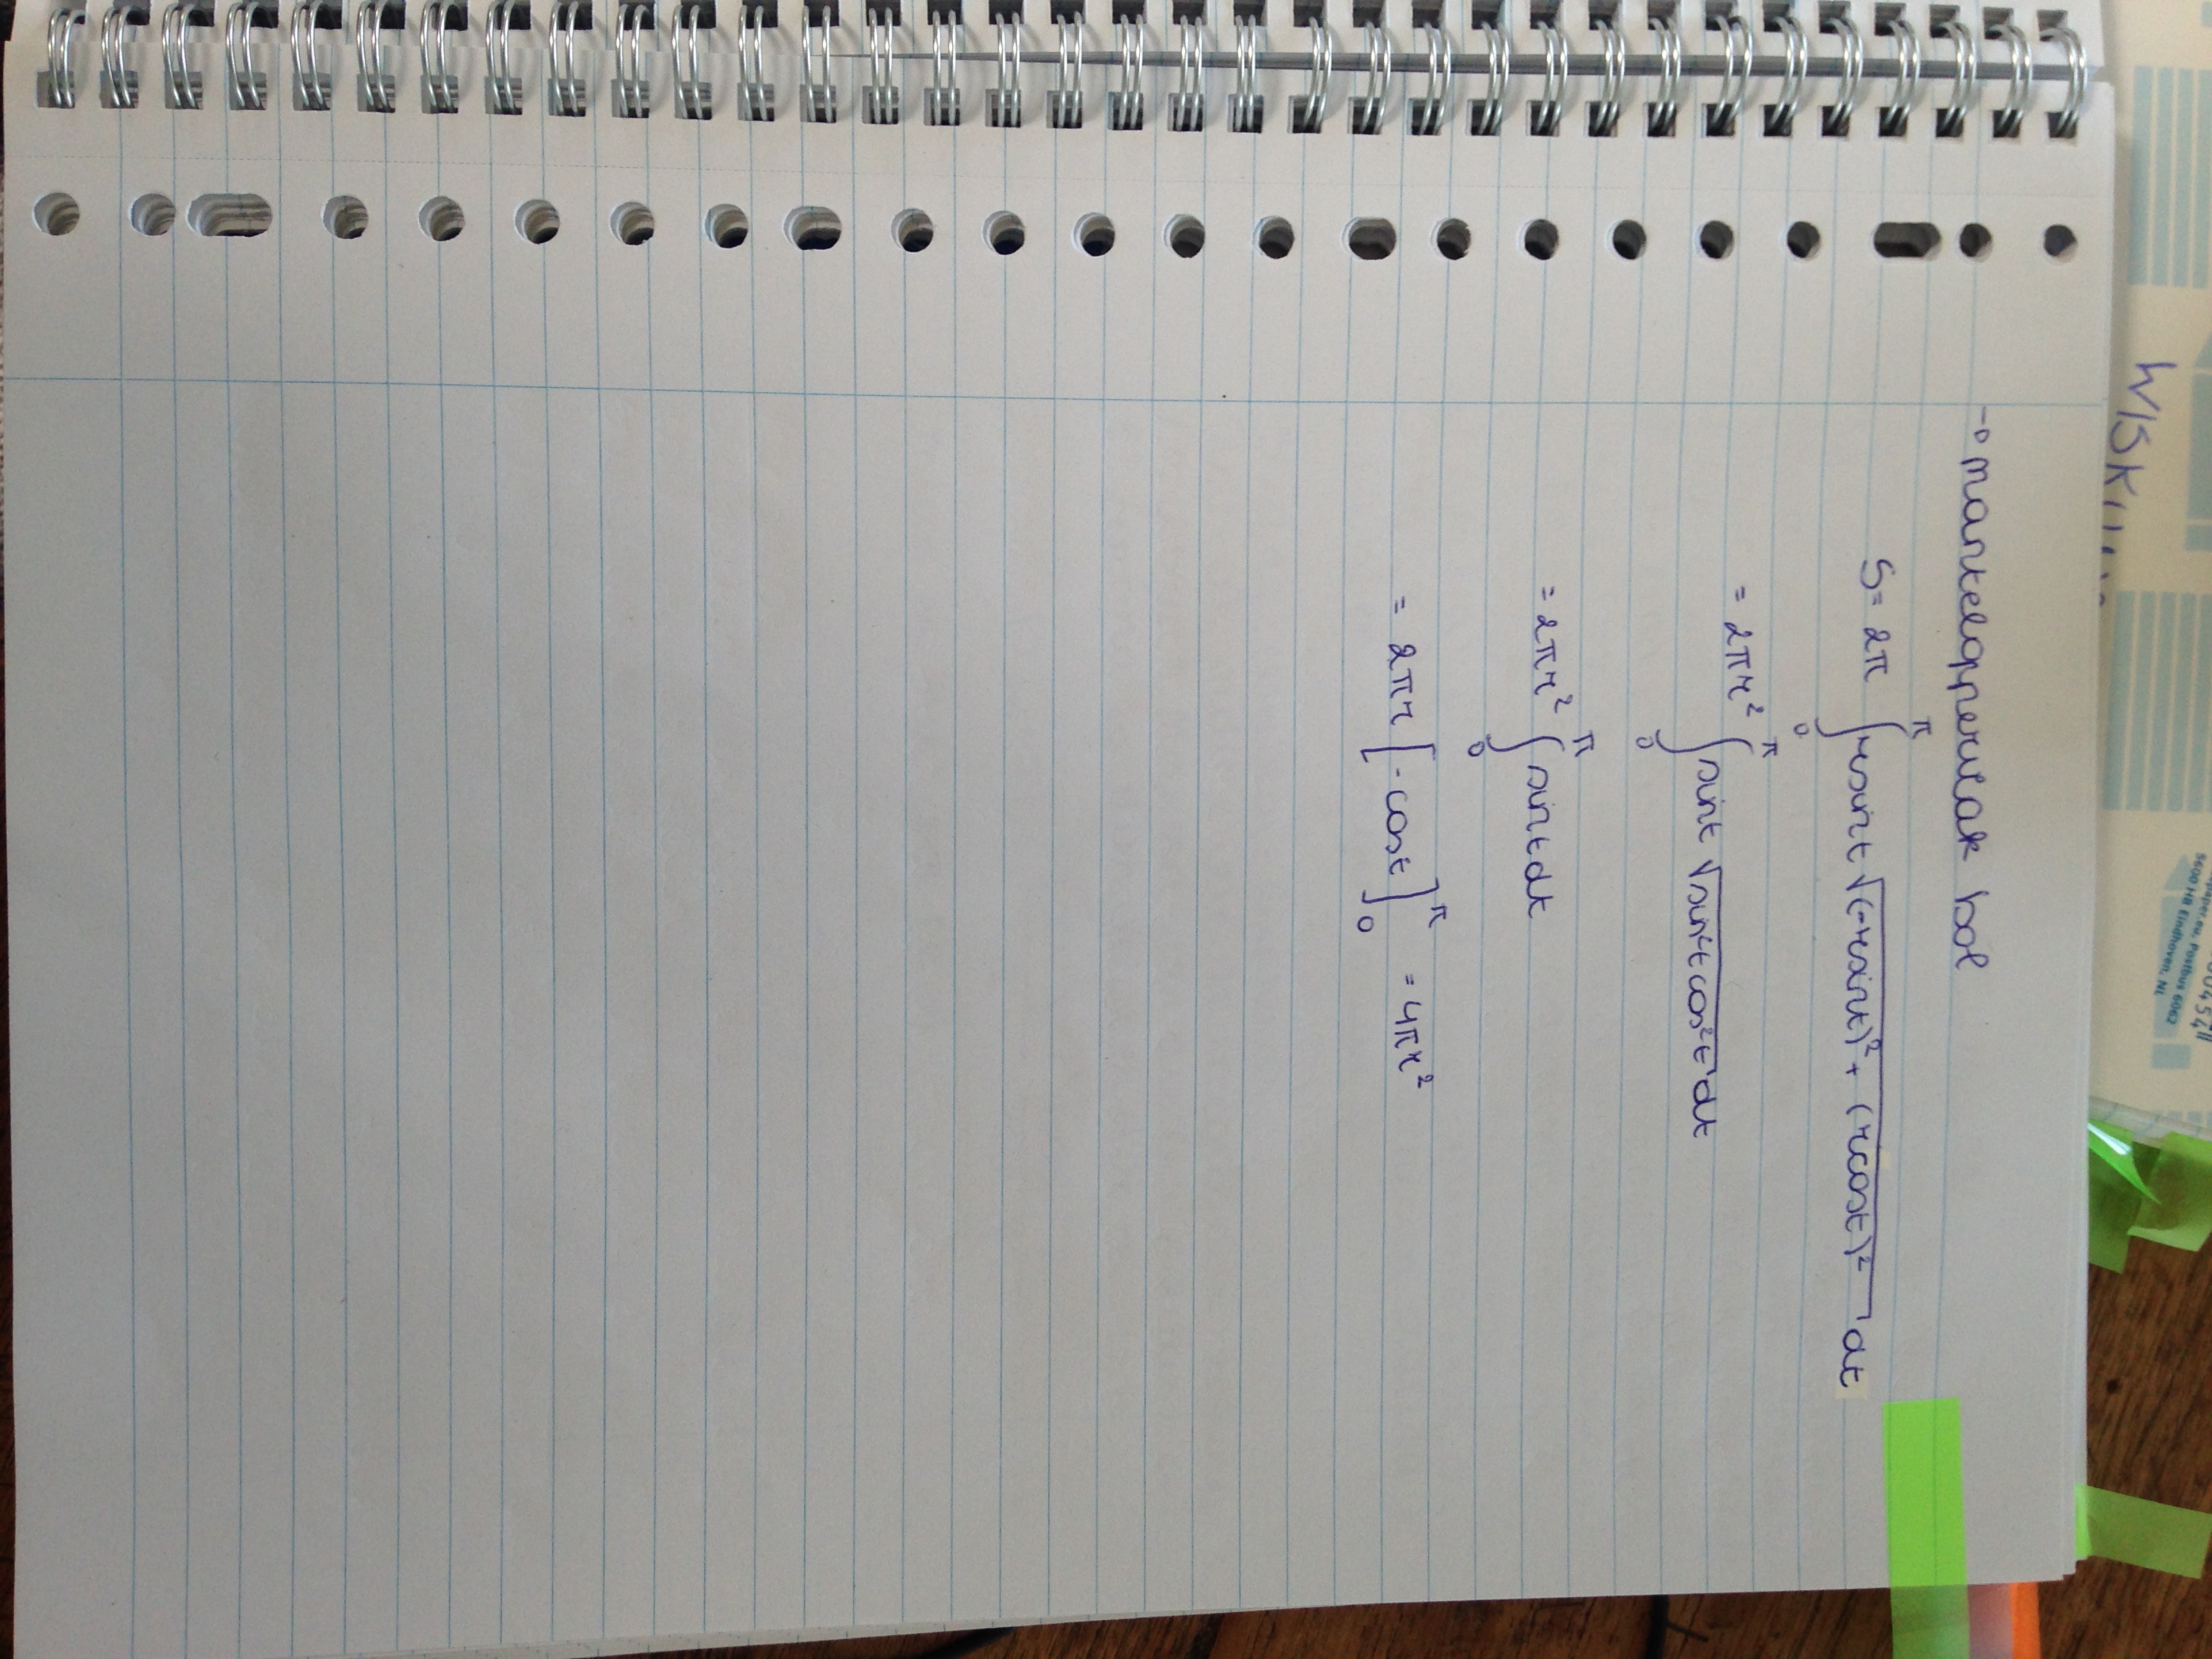 00454
paper.eu, Postbus 6062
5600 HB Eindhoven, NL
WISKUN
→ manteloppervlak bol
S = 2π ∫₀^π r sin t √((-r sin t)² + (r cos t)²) dt
= 2πr² ∫₀^π sin t √(sin²t cos²t) dt
= 2πr² ∫₀^π sin t dt
= 2πr [-cos t]₀^π = 4πr²